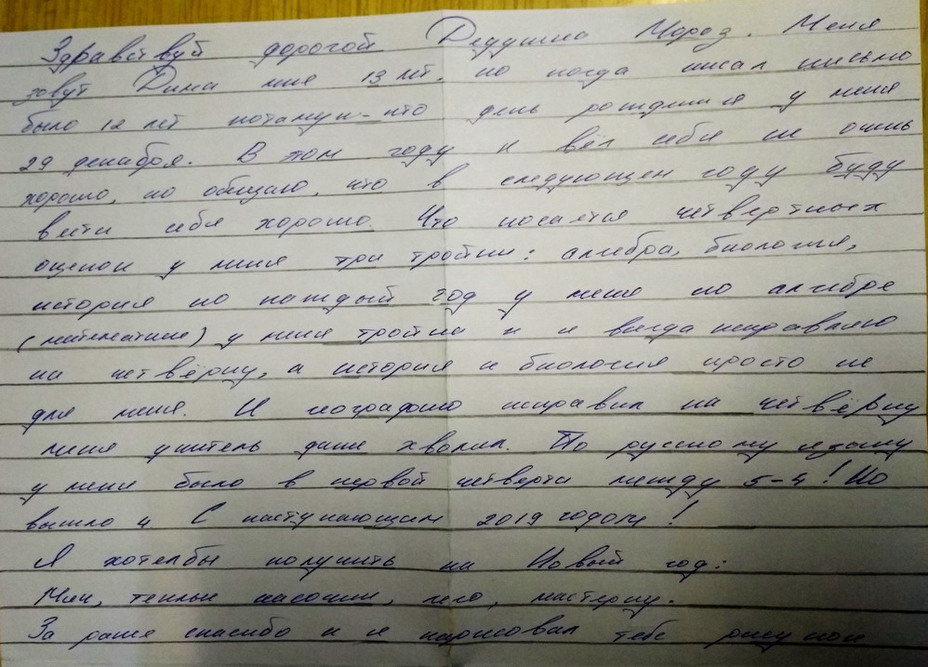 Здравствуй дорогой Дедушка Мороз. Меня
зовут Дима мне 13 лет, но когда писал письмо
было 12 лет потамуч-что день рождения у меня
29 декабря. В том году я вёл себя не очень
хорошо, но обищаю, что в следующем году буду
вести себя хорошо. Что косается четвертных
оценок у меня три тройки: алгебра, биология,
история но каждый год у меня по алгебре
(математике) у меня тройка и я всегда исправляю
на четвёрку, а история и биология просто не
для меня. И географию исправил на четвёрку
меня учитель даже хвалил. По русскому языку
у меня было в первой четверти между 5-4! Но
вышло 4 С наступающим 2019 годом!
Я хотелбы получить на Новый год:
Мяч, теплые носочки, лего, мастерку.
За ранее спасибо и я нарисовал тебе рисунок